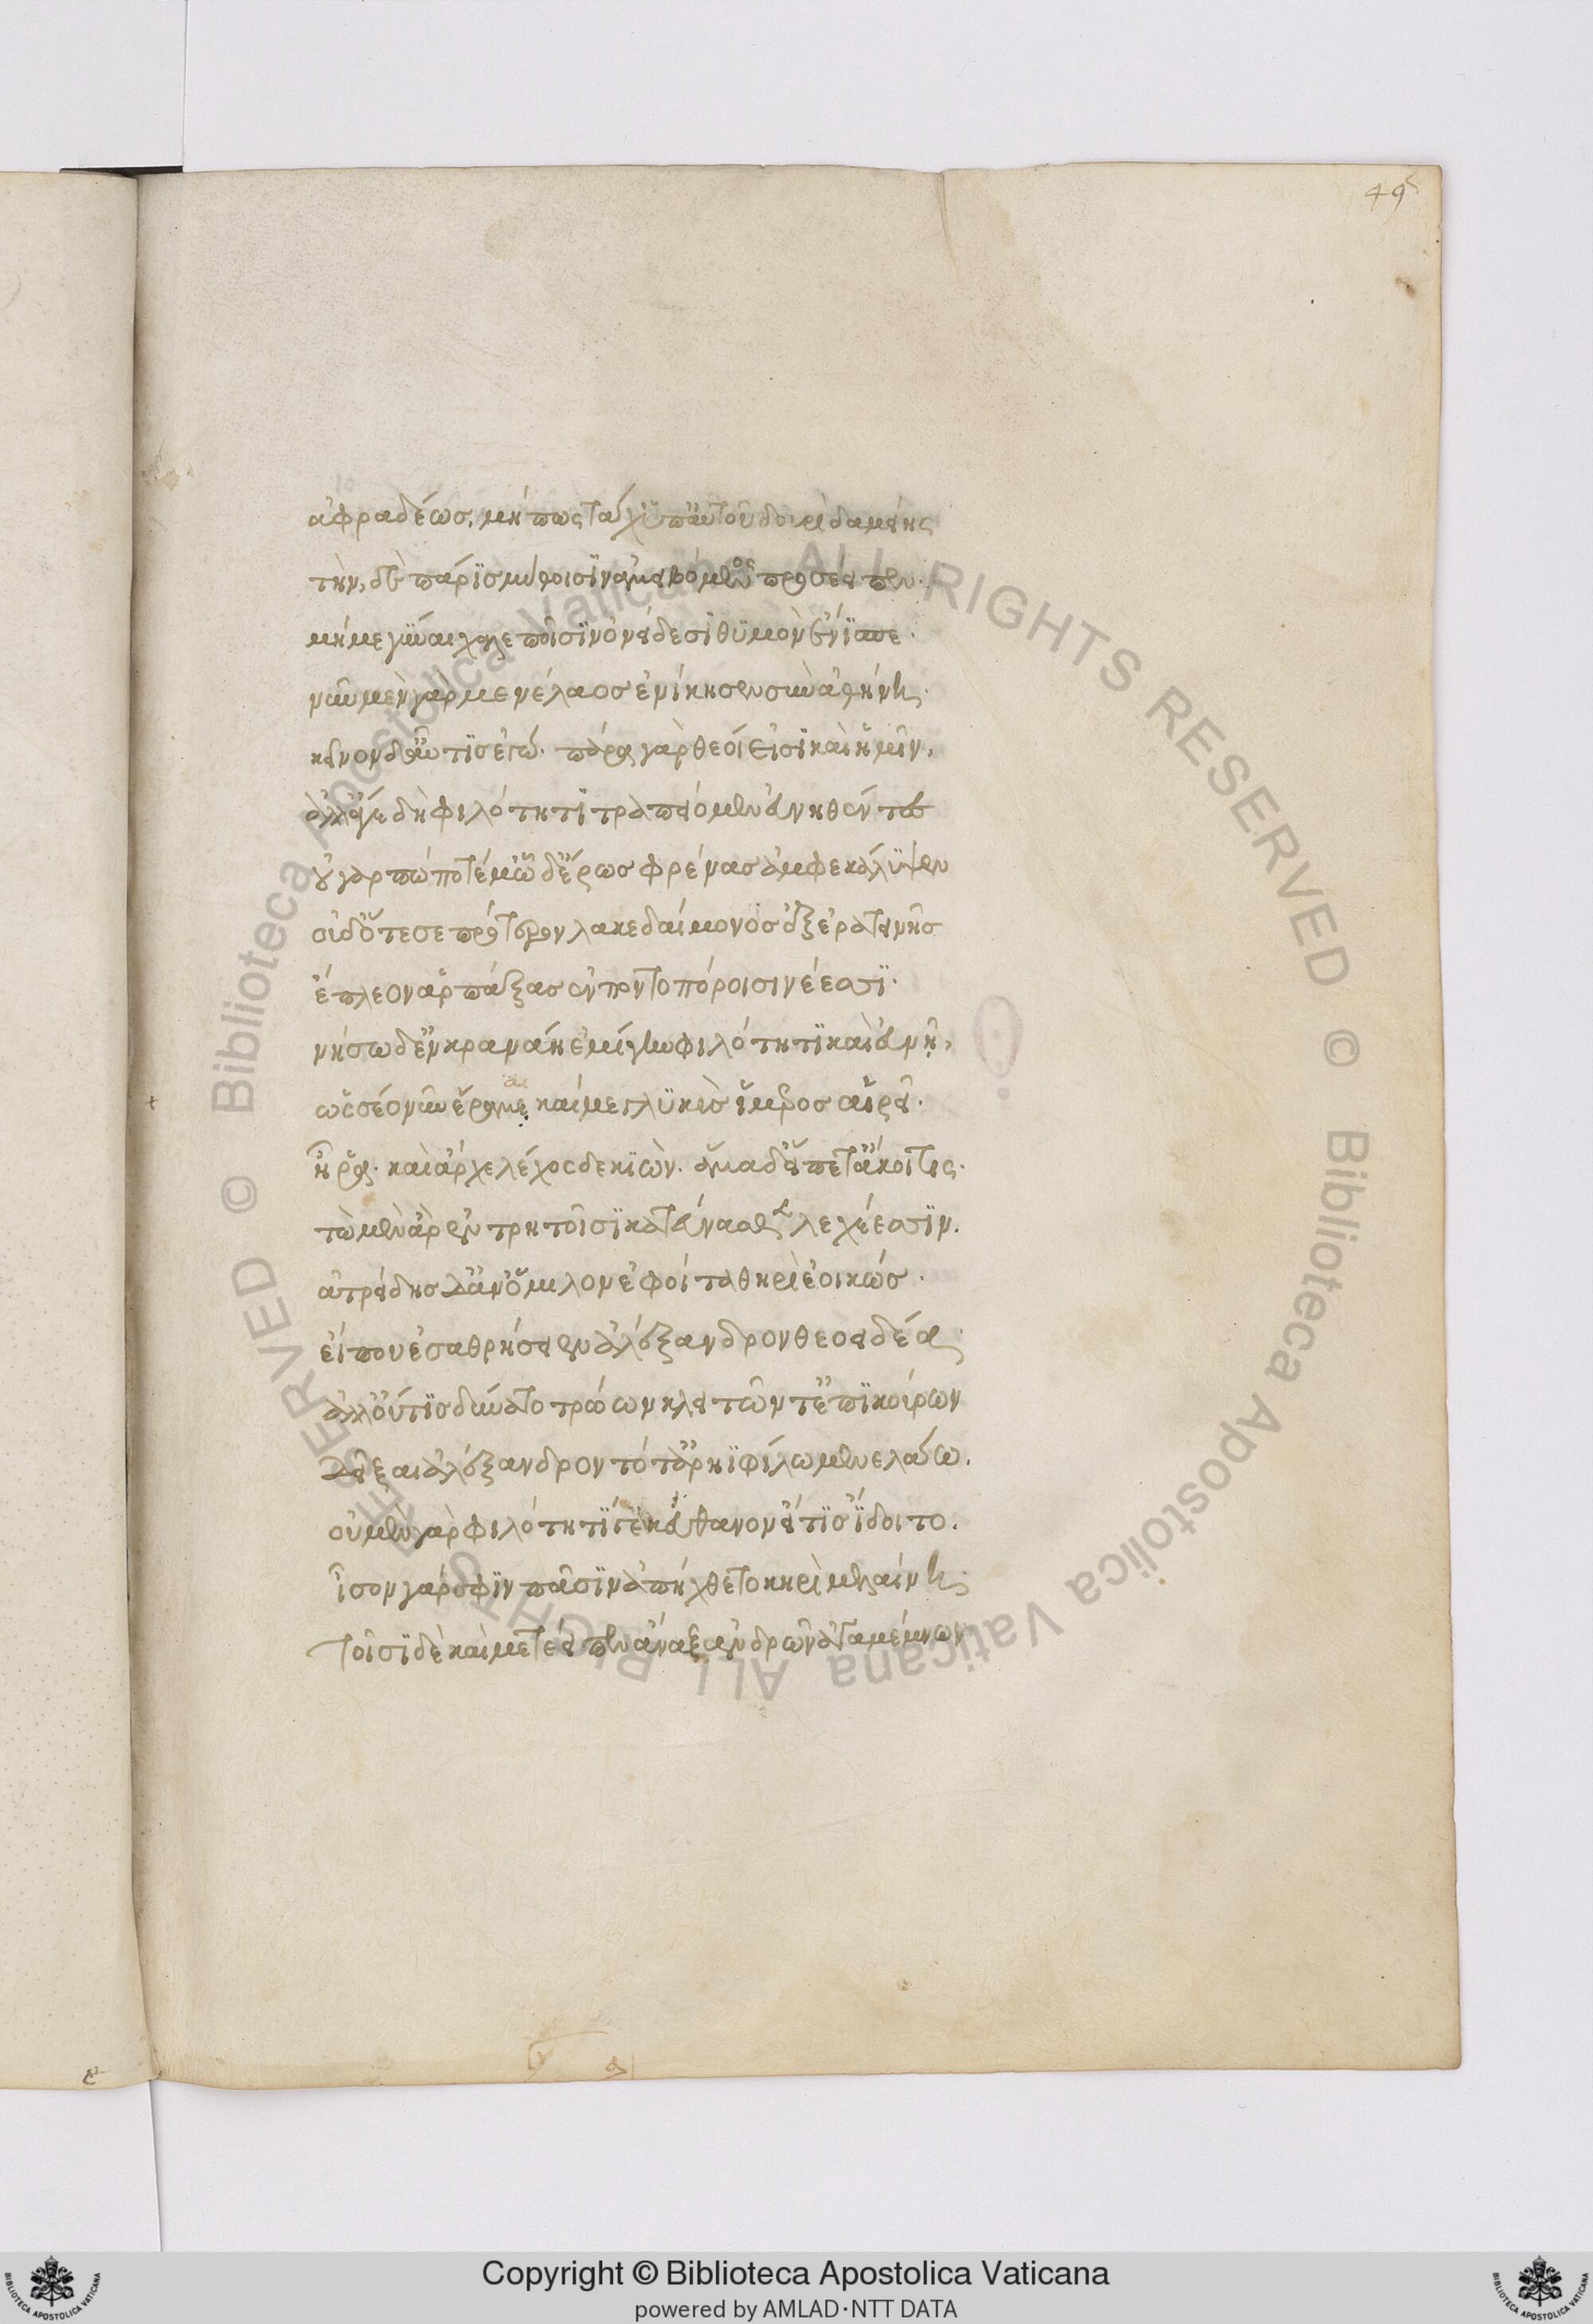 49
ἀφραδέως, μή πως τάχ' ὑπ' αὐτοῦ δουρὶ δαμείης
τὴν δὲ πάρις μύθοισιν ἀμειβόμενος προσέειπεν.
μή με γύναι χαλεποῖσιν ὀνείδεσι θυμὸν ἔνιπτε.
νῦν μὲν γὰρ μενέλαος ἐνίκησεν σὺν ἀθήνῃ.
κεῖνον δ' αὖτις ἐγώ. πάρα γὰρ θεοί εἰσι καὶ ἡμῖν,
ἀλλ' ἄγε δὴ φιλότητι τραπείομεν εὐνηθέντε
οὐ γάρ πώποτέ μ' ὧδ' ἔρως φρένας ἀμφεκάλυψεν
οὐδ' ὅτε σε πρότερον λακεδαίμονος ἐξ ἐρατεινῆς
ἔπλεον ἁρπάξας ἐν ποντοπόροισι νέεσσι.
νήσω δ' ἐν κραναῇ ἐμίγην φιλότητι καὶ εὐνῇ,
ὥς σέο νῦν ἔραμαι καί με γλυκὺς ἵμερος αἱρεῖ.
ἦ ῥα. καὶ ἄρχε λέχος δε κιών. ἅμα δ' εἵπετ' ἄκοιτις.
τὼ μὲν ἄρ' ἐν τρητοῖσι κατεύνασθεν λεχέεσσιν.
ἀτρείδης δ' ἀν' ὅμιλον ἐφοίτα θηρὶ ἐοικώς.
εἴ που ἐσαθρήσειεν ἀλέξανδρον θεοειδέα.
ἀλλ' οὔτις δύνατο τρώων κλειτῶν τ' ἐπικούρων
δεῖξαι ἀλέξανδρον τότ' ἀρηιφίλω μενελάω.
οὐ μὲν γὰρ φιλότητί γ' ἐκεύθανον εἴ τις ἴδοιτο.
ἶσον γάρ σφιν πᾶσιν ἀπήχθετο κηρὶ μελαίνῃ.
τοῖσι δὲ καὶ μετέειπεν ἄναξ ἀνδρῶν ἀγαμέμνων
Copyright © Biblioteca Apostolica Vaticana
powered by AMLAD·NTT DATA